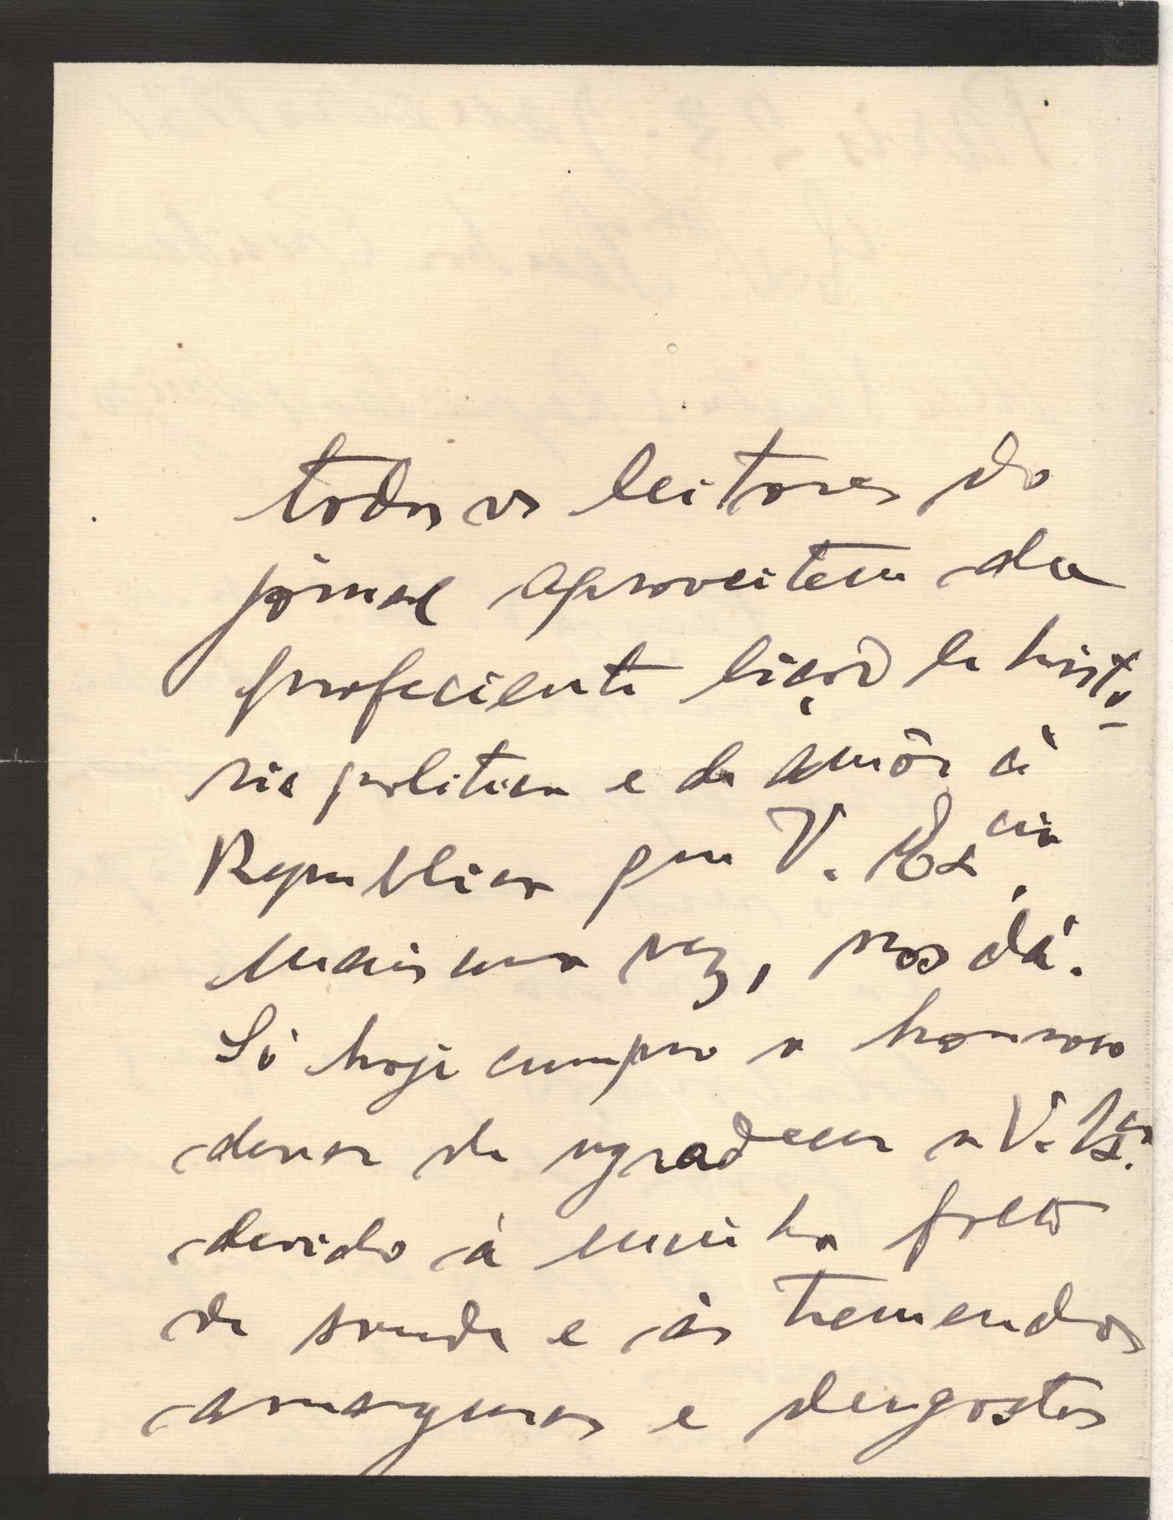 todos os leitores do
jornal aproveitem da
proficiente lição de histo-
ria politica e de amôr á
Republica que V. Ex.cia,
mais uma vez, nos dá.
Só hoje cumpro o honroso
dever de agradecer a V. Ex.cia
devido á minha falta
de saude e ás tremendas
amarguras e desgostos